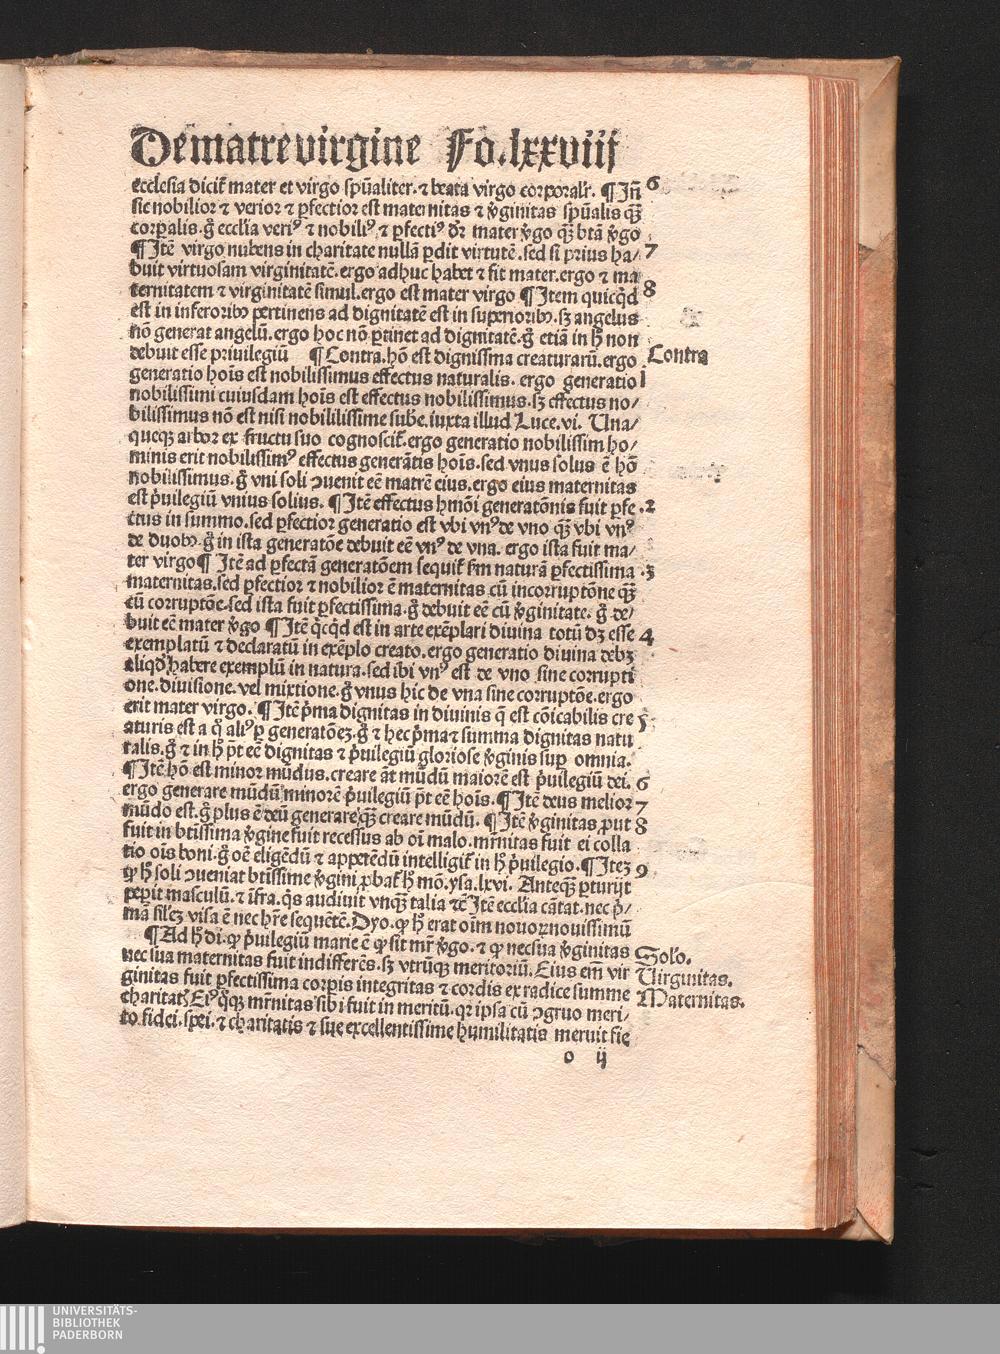 De matre virgine Fo. lxxviij
ecclesia dicit̃ mater et virgo sp̃ualiter. ⁊ beata virgo corporalr̃. ¶ Jñ 6
sic nobilior ⁊ verior ⁊ ꝑfectior est maternitas ⁊ v̾ginitas sp̃ualis qȝ̃
corꝑalis. g̊ eccl̃ia veriꝰ ⁊ nobiliꝰ ⁊ ꝑfectiꝰ dr̃ mater v̾go qȝ̃ btã v̾go
¶ Jtẽ virgo nubens in charitate nullã ꝑdit virtutẽ. sed si prius ha/ 7
buit virtuosam virginitatẽ. ergo adhuc habet ⁊ fit mater. ergo ⁊ ma
ternitatem ⁊ virginitatẽ simul. ergo est mater virgo ¶ Jtem quicq̇d 8
est in inferioribꝰ pertinens ad dignitatẽ est in superioribꝰ. sȝ angelus
nõ generat angelũ. ergo hoc nõ ꝑtinet ad dignitatẽ. g̊ etiã in h̊ non
debuit esse priuilegiũ ¶ Contra. hõ est dignissima creaturarũ. ergo Contra
generatio hoĩs est nobilissimus effectus naturalis. ergo generatio 1
nobilissimi cuiusdam hoĩs est effectus nobilissimus. sȝ effectus no/
bilissimus nõ est nisi nobililissime sub̃e. iuxta illud Luce. vi. Una/
queqȝ arbor ex fructu suo cognoscit̃. ergo generatio nobilissim ho/
minis erit nobilissimꝰ effectus generãtis hoĩs. sed vnus solus ẽ hõ
nobilissimus. g̊ vni soli ꝯuenit eẽ matrẽ eius. ergo eius maternitas
est p̃uilegiũ vnius solius. ¶ Jtẽ effectus hmõi generatõnis fuit ꝑfe 2
ctus in summo. sed ꝑfectior generatio est vbi vnꝰ de vno qȝ̃ vbi vnꝰ
de duobꝰ. g̊ in ista generatõe debuit eẽ vnꝰ de vna. ergo ista fuit ma/
ter virgo ¶ Jtẽ ad ꝑfectã generatõem sequit̃ s̃m naturã ꝑfectissima 3
maternitas. sed ꝑfectior ⁊ nobilior ẽ maternitas cũ incorruptõne qȝ̃
cũ corruptõe. sed ista fuit ꝑfectissima. g̊ debuit eẽ cũ v̾ginitate. g̊ de/
buit eẽ mater v̾go ¶ Jtẽ q̇cq̇d est in arte exẽplari diuina totũ dȝ esse 4
exemplatũ ⁊ declaratũ in exẽplo creato. ergo generatio diuina debȝ
aliqd̾ habere exemplũ in natura. sed ibi vnꝰ est de vno sine corrupti
one. diuisione. vel mixtione. g̊ vnus hic de vna sine corruptõe. ergo
erit mater virgo. ¶ Jtẽ p̃ma dignitas in diuinis q̃ est cõicabilis cre 5
aturis est a q̊ aliꝰ ꝑ generatõeȝ. g̊ ⁊ hec p̃ma ⁊ summa dignitas natu
ralis. g̊ ⁊ in h̊ p̃t eẽ dignitas ⁊ p̃uilegiũ gloriose v̾ginis suꝑ omnia.
¶ Jtẽ hõ est minor mũdus. creare aũt mũdũ maiorẽ est p̃uilegiũ dei. 6
ergo generare mũdũ minorẽ p̃uilegiũ p̃t eẽ hoĩs. ¶ Jtẽ deus melior 7
mũdo est. g̊ plus ẽ deũ generare qȝ̃ creare mũdũ. ¶ Jtẽ v̾ginitas ꝓut 8
fuit in btĩssima v̾gine fuit recessus ab oĩ malo. mr̃nitas fuit ei colla
tio oĩs boni. g̊ oẽ eligẽdũ ⁊ appetẽdũ intelligit̃ in h̊ p̃uilegio. ¶ Jteȝ 9
ꝙ h̊ soli ꝯueniat btĩssime v̾gini ꝓbat̃ h̊ mõ. ysa. lxvi. Anteqȝ̃ ꝑturijt
peperit masculũ. ⁊ ĩfra. q̇s audiuit vnqȝ̃ talia ⁊c̃ Jtẽ eccl̃ia cãtat. nec p̃/
mã sil̃eȝ visa ẽ nec hr̃e sequẽtẽ. Dyo. ꝙ h̊ erat oĩm nouoꝝ nouissimũ
¶ Ad h̊ di. ꝙ p̃uilegiũ marie ẽ ꝙ sit mr̃ v̾go. ⁊ ꝙ nec sua v̾ginitas Solõ.
nec sua maternitas fuit indifferẽs. sȝ vtrũqȝ meritoriũ. Eius em̃ vir Uirginitas.
ginitas fuit ꝑfectissima corꝑis integritas ⁊ cordis ex radice summe
charitat̃ Eiꝰ q̊qȝ mr̃nitas sibi fuit in meritũ. qꝛ ipsa cũ ꝯgruo meri/ Maternitas.
to fidei. spei. ⁊ charitatis ⁊ sue excellentissime humilitatis meruit fie
o ij
UNIVERSITÄTS-
BIBLIOTHEK
PADERBORN